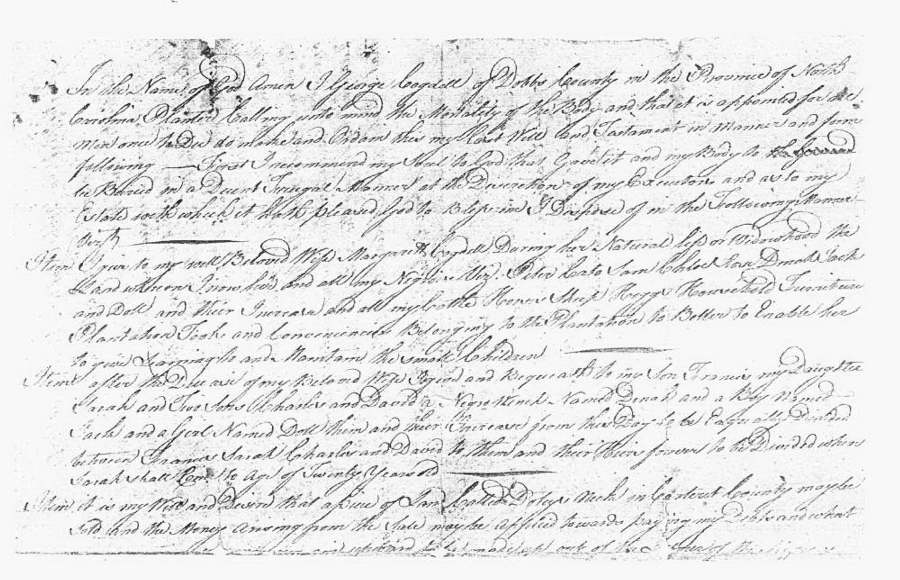 In the Name of God Amen I George Cogdell of Dobbs County in the Province of North
Carolina Planter Calling unto mind the Mortality of the Body and that it is appointed for all
Men once to Die do make and Ordain this my Last Will and Testament in Manner and form
following — First I recommend my Soul to God that Gave it and my Body to
be Buried in a Decent Funeral Manner at the Discretion of my Executors and as to my
Estate with which it hath pleased God to Bless me I Dispose of in the Following Manner
Viz
Item I give to my well Beloved Wife Margarett Cogdell During her Natural life or Widowhood the
Land whereon I now live and all my Negroes Peter Cato Sam Chloe Dinah Jack
and Doll and their Increase and all my Cattle Horses Sheep Hoggs Household Furniture
Plantation Tools and Conveniencies Belonging to the Plantation to Better to Enable her
to give Learning to and Maintain the small Children
Item after the Decease of my Beloved Wife I give and Bequeath to my Son Francis my Daughter
Sarah and Two Sons Charles and David a Negro Wench Named Dinah and a Boy Named
Jack and a Girl Named Doll them and their Increase from this Day to be Equally Divided
between Francis Sarah Charles and David to them and their Heirs forever to be Divided when
Sarah shall Come to Age of Twenty Years old
Item it is my Will and Desire that a piece of Land Called Neck in Carteret County may be
Sold and the Money Arising from the Sale may be applied towards paying my Debts and what
to be made up out of the